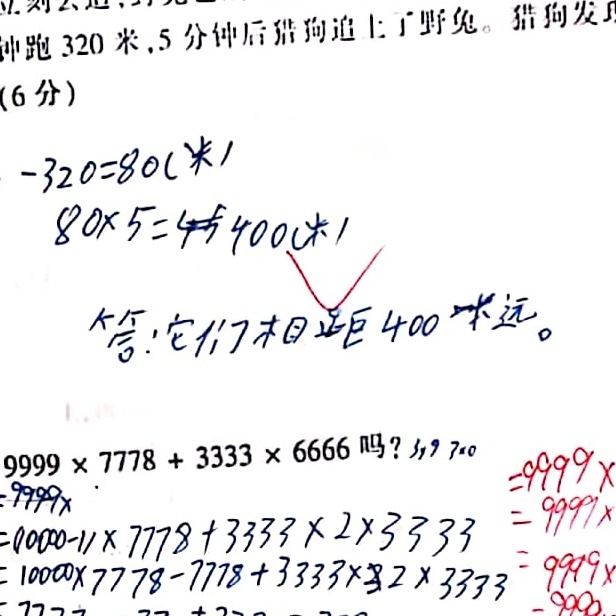 钟跑 320 米,5 分钟后猎狗追上了野兔。猎狗发现
(6 分)
-320=80(米)
80×5=400(米)
答:它们相距400米远。
9999 × 7778 + 3333 × 6666 吗?
=9999×
=9999×
=(10000-1)×7778+3333×2×3333
=9999×
=10000×7778-7778+3333×2×3333
=9999×